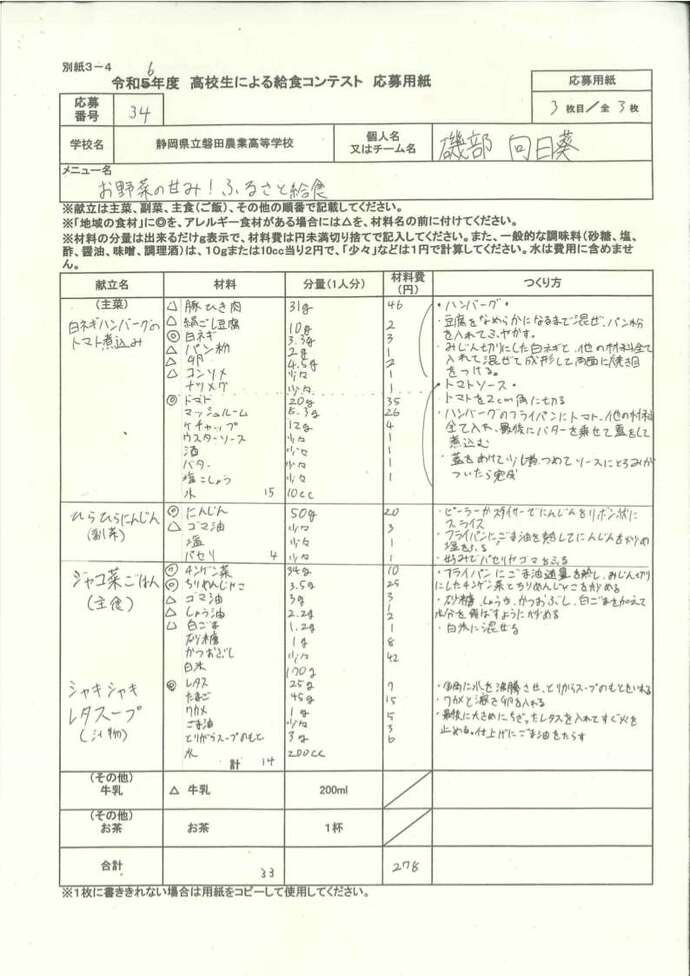 別紙3－4
令和6年度 高校生による給食コンテスト 応募用紙
応募用紙
3枚目／全3枚
応募番号
34
学校名
静岡県立磐田農業高等学校
個人名又はチーム名
磯部 向日葵
メニュー名
お野菜の甘み！ふるさと給食
※献立は主菜、副菜、主食(ご飯)、その他の順番で記載してください。
※「地域の食材」に◎を、アレルギー食材がある場合には△を、材料名の前に付けてください。
※材料の分量は出来るだけg表示で、材料費は円未満切り捨てで記入してください。また、一般的な調味料(砂糖、塩、
酢、醤油、味噌、調理酒)は、10gまたは10cc当り2円で、「少々」などは1円で計算してください。水は費用に含めませ
ん。
献立名 材料 分量(1人分) 材料費(円) つくり方
(主菜)
白ネギハンバーグの
トマト煮込み
△ 豚ひき肉 31g 46
△ 絹ごし豆腐 10g 2
◎ 白ネギ 3.3g 3
△ パン粉 2g 1
△ 卵 4.5g 2
△ コンソメ 少々 1
ナツメグ 少々 1
◎ トマト 20g 35
マッシュルーム 5.3g 26
ケチャップ 12g 4
ウスターソース 少々 1
酒 少々 1
バター 少々 1
塩こしょう 少々 1
水 15 10cc
・ハンバーグ・
・豆腐をなめらかになるまで混ぜ、パン粉
を入れてふやかす。
・みじん切りにした白ネギと、他の材料全て
入れて混ぜて成形して両面に焼き目
をつける。
・トマトソース・
・トマトを2cm角に切る
・ハンバーグのフライパンにトマト、他の材料
全て入れ、最後にバターを乗せて蓋をして
煮込む
・蓋をあけて少し煮つめてソースにとろみが
ついたら完成
ひらひらにんじん
(副菜)
◎ にんじん 50g 20
△ ゴマ油 少々 3
塩 少々 1
パセリ 4 少々 1
・ピーラーかスライサーでにんじんをリボン状に
スライス
・フライパンにごま油を熱してにんじんを炒め
塩をふる
・好みでパセリやゴマをふる
ジャコ菜ごはん
(主食)
◎ チンゲン菜 34g 10
◎ ちりめんじゃこ 3.5g 25
△ ゴマ油 3g 3
△ しょう油 2.2g 1
△ 白ごま 1.2g 2
砂糖 1g 1
かつおぶし 少々 8
白米 170g 42
・フライパンにごま油適量を熱し、みじん切り
にしたチンゲン菜とちりめんじゃこを炒める
・砂糖、しょうゆ、かつおぶし、白ごまを加えて
水分を飛ばすように炒める
・白米に混ぜる
シャキシャキ
レタスープ
(汁物)
◎ レタス 25g 7
たまご 45g 15
ワカメ 1g 5
ごま油 少々 3
とりがらスープのもと 3g 6
水 200cc
計 14
・鍋に水を沸騰させ、とりがらスープのもとをいれる
・ワカメと溶き卵を入れる
・最後に大きめにちぎったレタスを入れてすぐ火を
止める。仕上げにごま油をたらす
(その他)
牛乳 △ 牛乳 200ml
(その他)
お茶 お茶 1杯
合計 33 278
※1枚に書ききれない場合は用紙をコピーして使用してください。